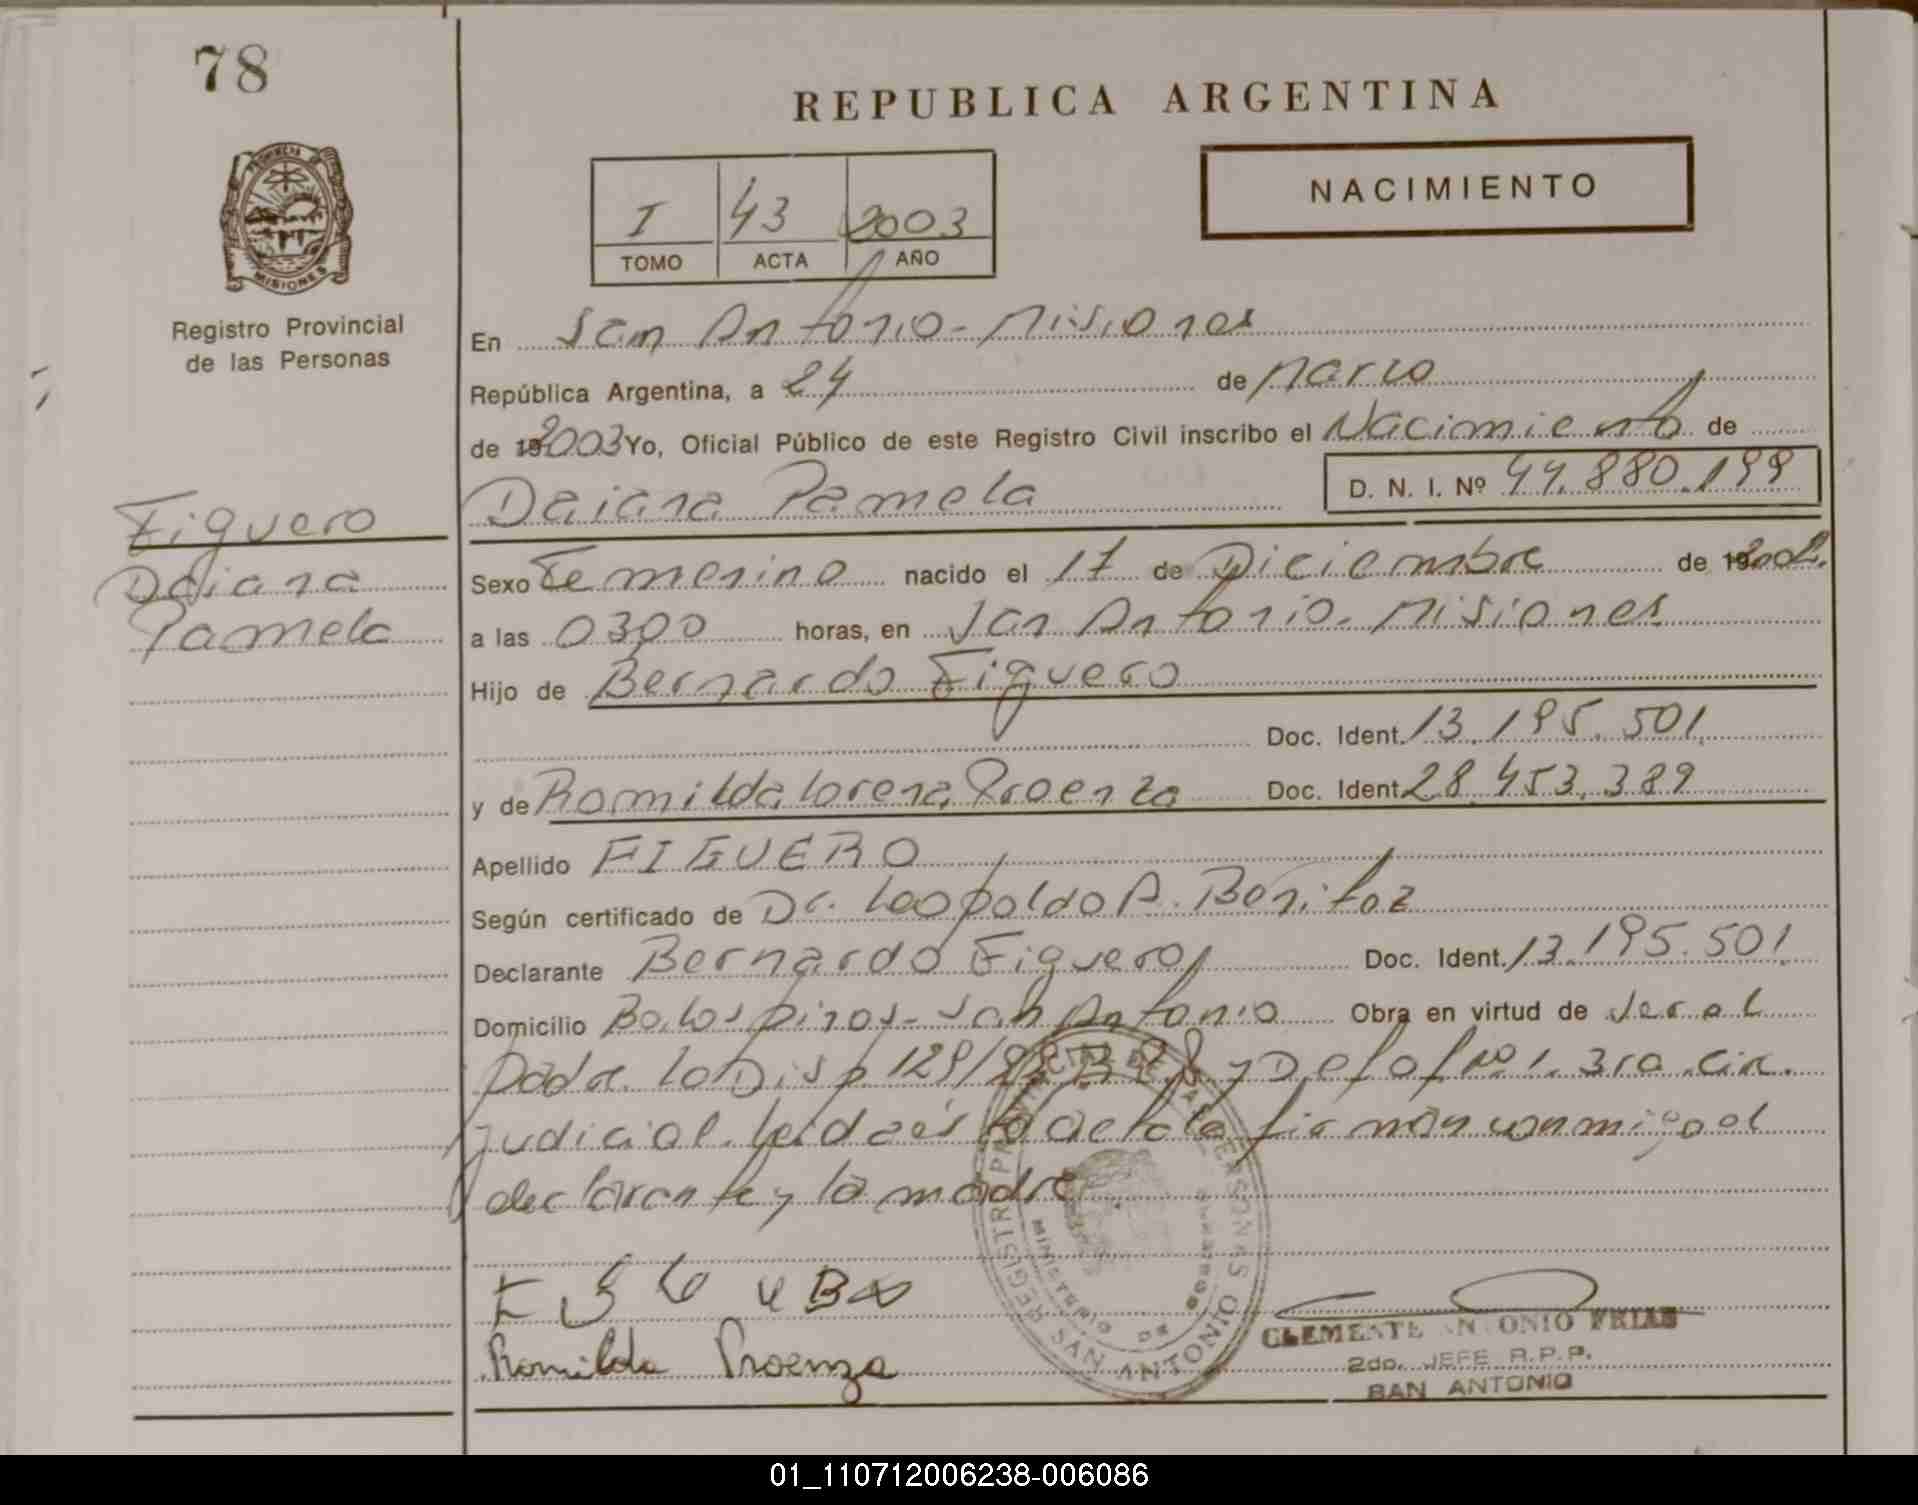 78
REPUBLICA ARGENTINA
PROVINCIA DE
MISIONES
Registro Provincial
de las Personas
NACIMIENTO
I 43 2003
TOMO ACTA AÑO
En San Antonio - Misiones
República Argentina, a 24 de Marzo
de 192003 Yo, Oficial Público de este Registro Civil inscribo el Nacimiento de
Daiana Pamela D. N. I. Nº 44.880.199
Figuero
Daiana
Pamela
Sexo Femenino nacido el 17 de Diciembre de 192002.
a las 0300 horas, en San Antonio - Misiones
Hijo de Bernardo Figuero
Doc. Ident. 13.195.501.
y de Romilda Lorena Proenza Doc. Ident. 28.453.389
Apellido FIGUERO
Según certificado de Dr. Leopoldo A. Benitez
Declarante Bernardo Figuero Doc. Ident. 13.195.501.
Domicilio B° Los Pinos - San Antonio Obra en virtud de ser el
padre. Disp 129/ y Def of N° 1. 3ra. cir.
judicial. Leida esta acta la firman conmigo el
declarante y la madre
Romilda Proenza
REGISTRO PROVINCIAL DE LAS PERSONAS
MINISTERIO DE GOBIERNO
SAN ANTONIO
CLEMENTE ANTONIO FRIAS
2do. JEFE R.P.P.
SAN ANTONIO
01_110712006238-006086